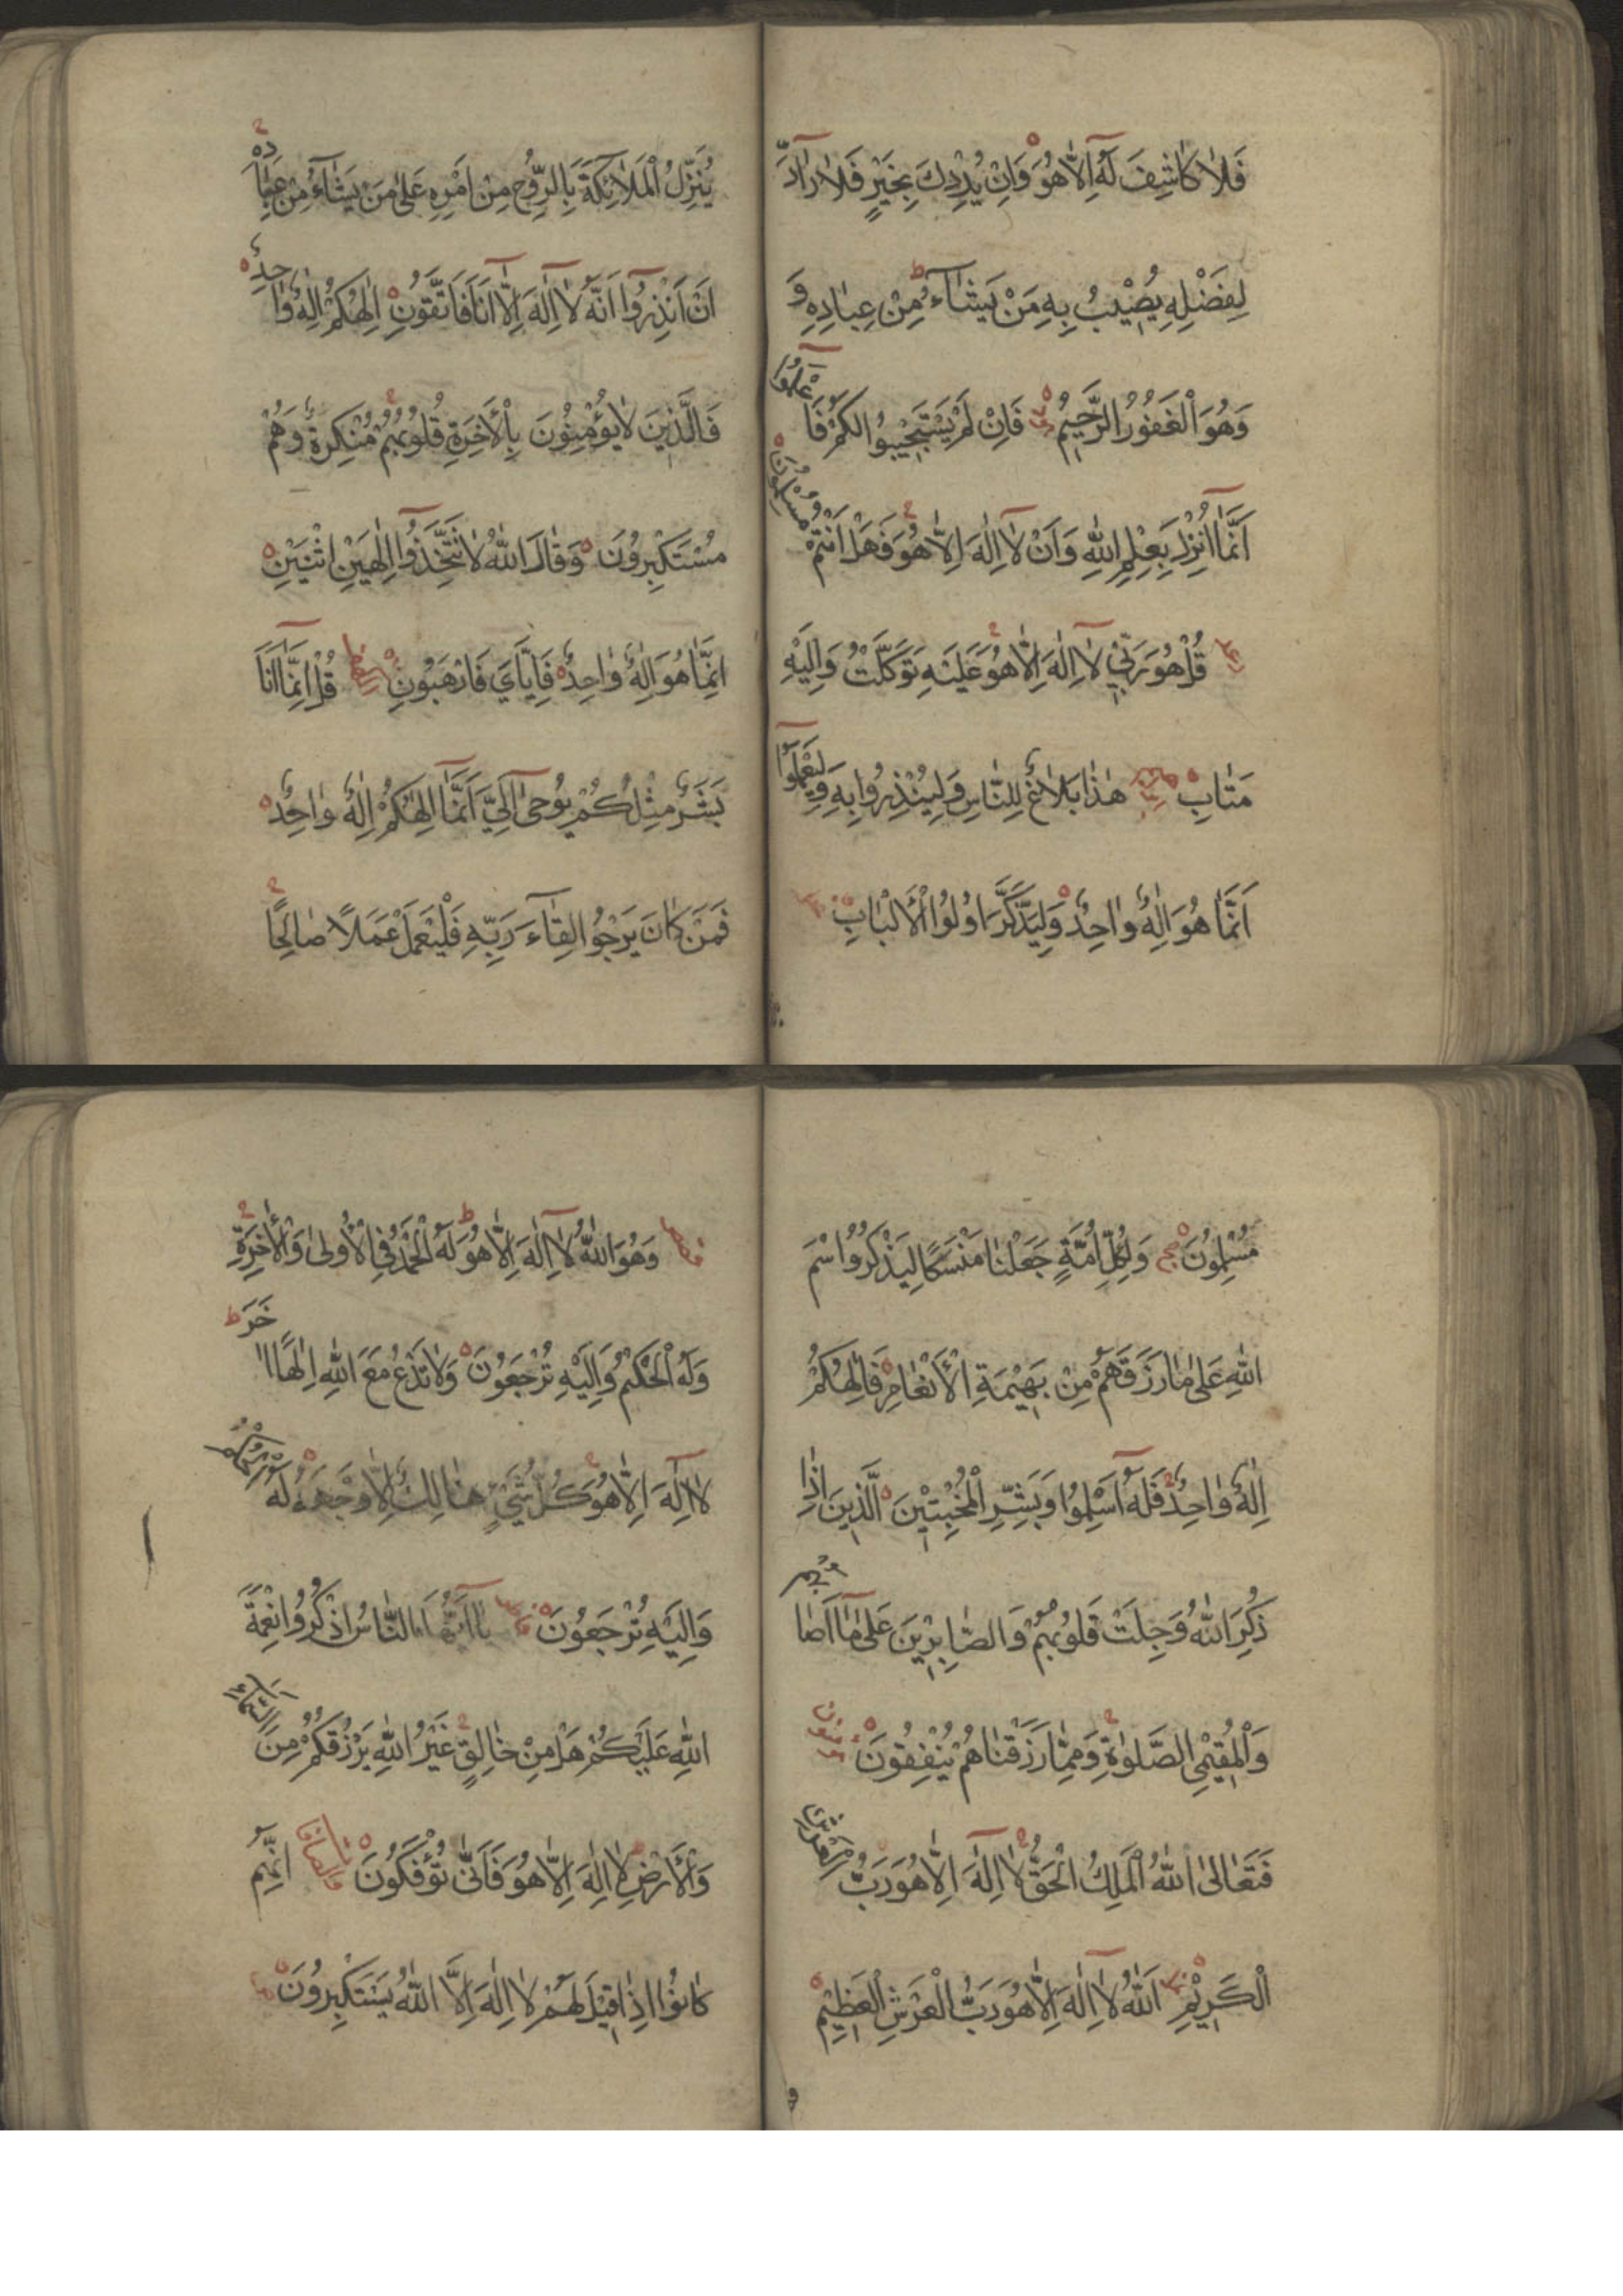 فَلَا كَاشِفَ لَهُ اِلَّا هُوَ وَاِنْ يُرِدْكَ بِخَيْرٍ فَلَا رَآدَّ
لِفَضْلِهِ يُصِيْبُ بِهِ مَنْ يَشَاءُ مِنْ عِبَادِهِ وَ
وَهُوَ الْغَفُوْرُ الرَّحِيْمُ فَاِنْ لَمْ يَسْتَجِيْبُوا لَكُمْ فَاعْلَمُوا
اَنَّمَا اُنْزِلَ بِعِلْمِ اللّٰهِ وَاَنْ لَا اِلٰهَ اِلَّا هُوَ فَهَلْ اَنْتُمْ مُسْلِمُوْنَ
رعد قُلْ هُوَ رَبِّيْ لَا اِلٰهَ اِلَّا هُوَ عَلَيْهِ تَوَكَّلْتُ وَاِلَيْهِ
مَتَابِ هٰذَا بَلَاغٌ لِلنَّاسِ وَلِيُنْذَرُوا بِهِ وَلِيَعْلَمُوا
اَنَّمَا هُوَ اِلٰهٌ وَاحِدٌ وَلِيَذَّكَّرَ اُولُوا الْاَلْبَابِ
يُنَزِّلُ الْمَلَائِكَةَ بِالرُّوْحِ مِنْ اَمْرِهِ عَلٰى مَنْ يَشَاءُ مِنْ عِبَادِهِ
اَنْ اَنْذِرُوا اَنَّهُ لَا اِلٰهَ اِلَّا اَنَا فَاتَّقُوْنِ اِلٰهُكُمْ اِلٰهٌ وَاحِدٌ
فَالَّذِيْنَ لَا يُؤْمِنُوْنَ بِالْاٰخِرَةِ قُلُوْبُهُمْ مُنْكِرَةٌ وَهُمْ
مُسْتَكْبِرُوْنَ وَقَالَ اللّٰهُ لَا تَتَّخِذُوا اِلٰهَيْنِ اثْنَيْنِ
اِنَّمَا هُوَ اِلٰهٌ وَاحِدٌ فَاِيَّايَ فَارْهَبُوْنِ الكهف قُلْ اِنَّمَا اَنَا
بَشَرٌ مِثْلُكُمْ يُوْحٰى اِلَيَّ اَنَّمَا اِلٰهُكُمْ اِلٰهٌ وَاحِدٌ
فَمَنْ كَانَ يَرْجُوا لِقَاءَ رَبِّهِ فَلْيَعْمَلْ عَمَلًا صَالِحًا
مُسْلِمُوْنَ حج وَلِكُلِّ اُمَّةٍ جَعَلْنَا مَنْسَكًا لِيَذْكُرُوا اسْمَ
اللّٰهِ عَلٰى مَا رَزَقَهُمْ مِنْ بَهِيْمَةِ الْاَنْعَامِ فَاِلٰهُكُمْ
اِلٰهٌ وَاحِدٌ فَلَهُ اَسْلِمُوا وَبَشِّرِ الْمُخْبِتِيْنَ الَّذِيْنَ اِذَا
ذُكِرَ اللّٰهُ وَجِلَتْ قُلُوْبُهُمْ وَالصَّابِرِيْنَ عَلٰى مَا اَصَابَهُمْ
وَالْمُقِيْمِي الصَّلٰوةِ وَمِمَّا رَزَقْنَاهُمْ يُنْفِقُوْنَ مؤمنون
فَتَعَالٰى اللّٰهُ الْمَلِكُ الْحَقُّ لَا اِلٰهَ اِلَّا هُوَ رَبُّ الْعَرْشِ
الْكَرِيْمِ نمل اَللّٰهُ لَا اِلٰهَ اِلَّا هُوَ رَبُّ الْعَرْشِ الْعَظِيْمِ
قصص وَهُوَ اللّٰهُ لَا اِلٰهَ اِلَّا هُوَ لَهُ الْحَمْدُ فِي الْاُولٰى وَالْاٰخِرَةِ
وَلَهُ الْحُكْمُ وَاِلَيْهِ تُرْجَعُوْنَ وَلَا تَدْعُ مَعَ اللّٰهِ اِلٰهًا اٰخَرَ
لَا اِلٰهَ اِلَّا هُوَ كُلُّ شَيْءٍ هَالِكٌ اِلَّا وَجْهَهُ لَهُ الْحُكْمُ
وَاِلَيْهِ تُرْجَعُوْنَ يَا اَيُّهَا النَّاسُ اذْكُرُوا نِعْمَةَ
اللّٰهِ عَلَيْكُمْ هَلْ مِنْ خَالِقٍ غَيْرُ اللّٰهِ يَرْزُقُكُمْ مِنَ السَّمَاءِ
وَالْاَرْضِ لَا اِلٰهَ اِلَّا هُوَ فَاَنّٰى تُؤْفَكُوْنَ والصافات اِنَّهُمْ
كَانُوْا اِذَا قِيْلَ لَهُمْ لَا اِلٰهَ اِلَّا اللّٰهُ يَسْتَكْبِرُوْنَ